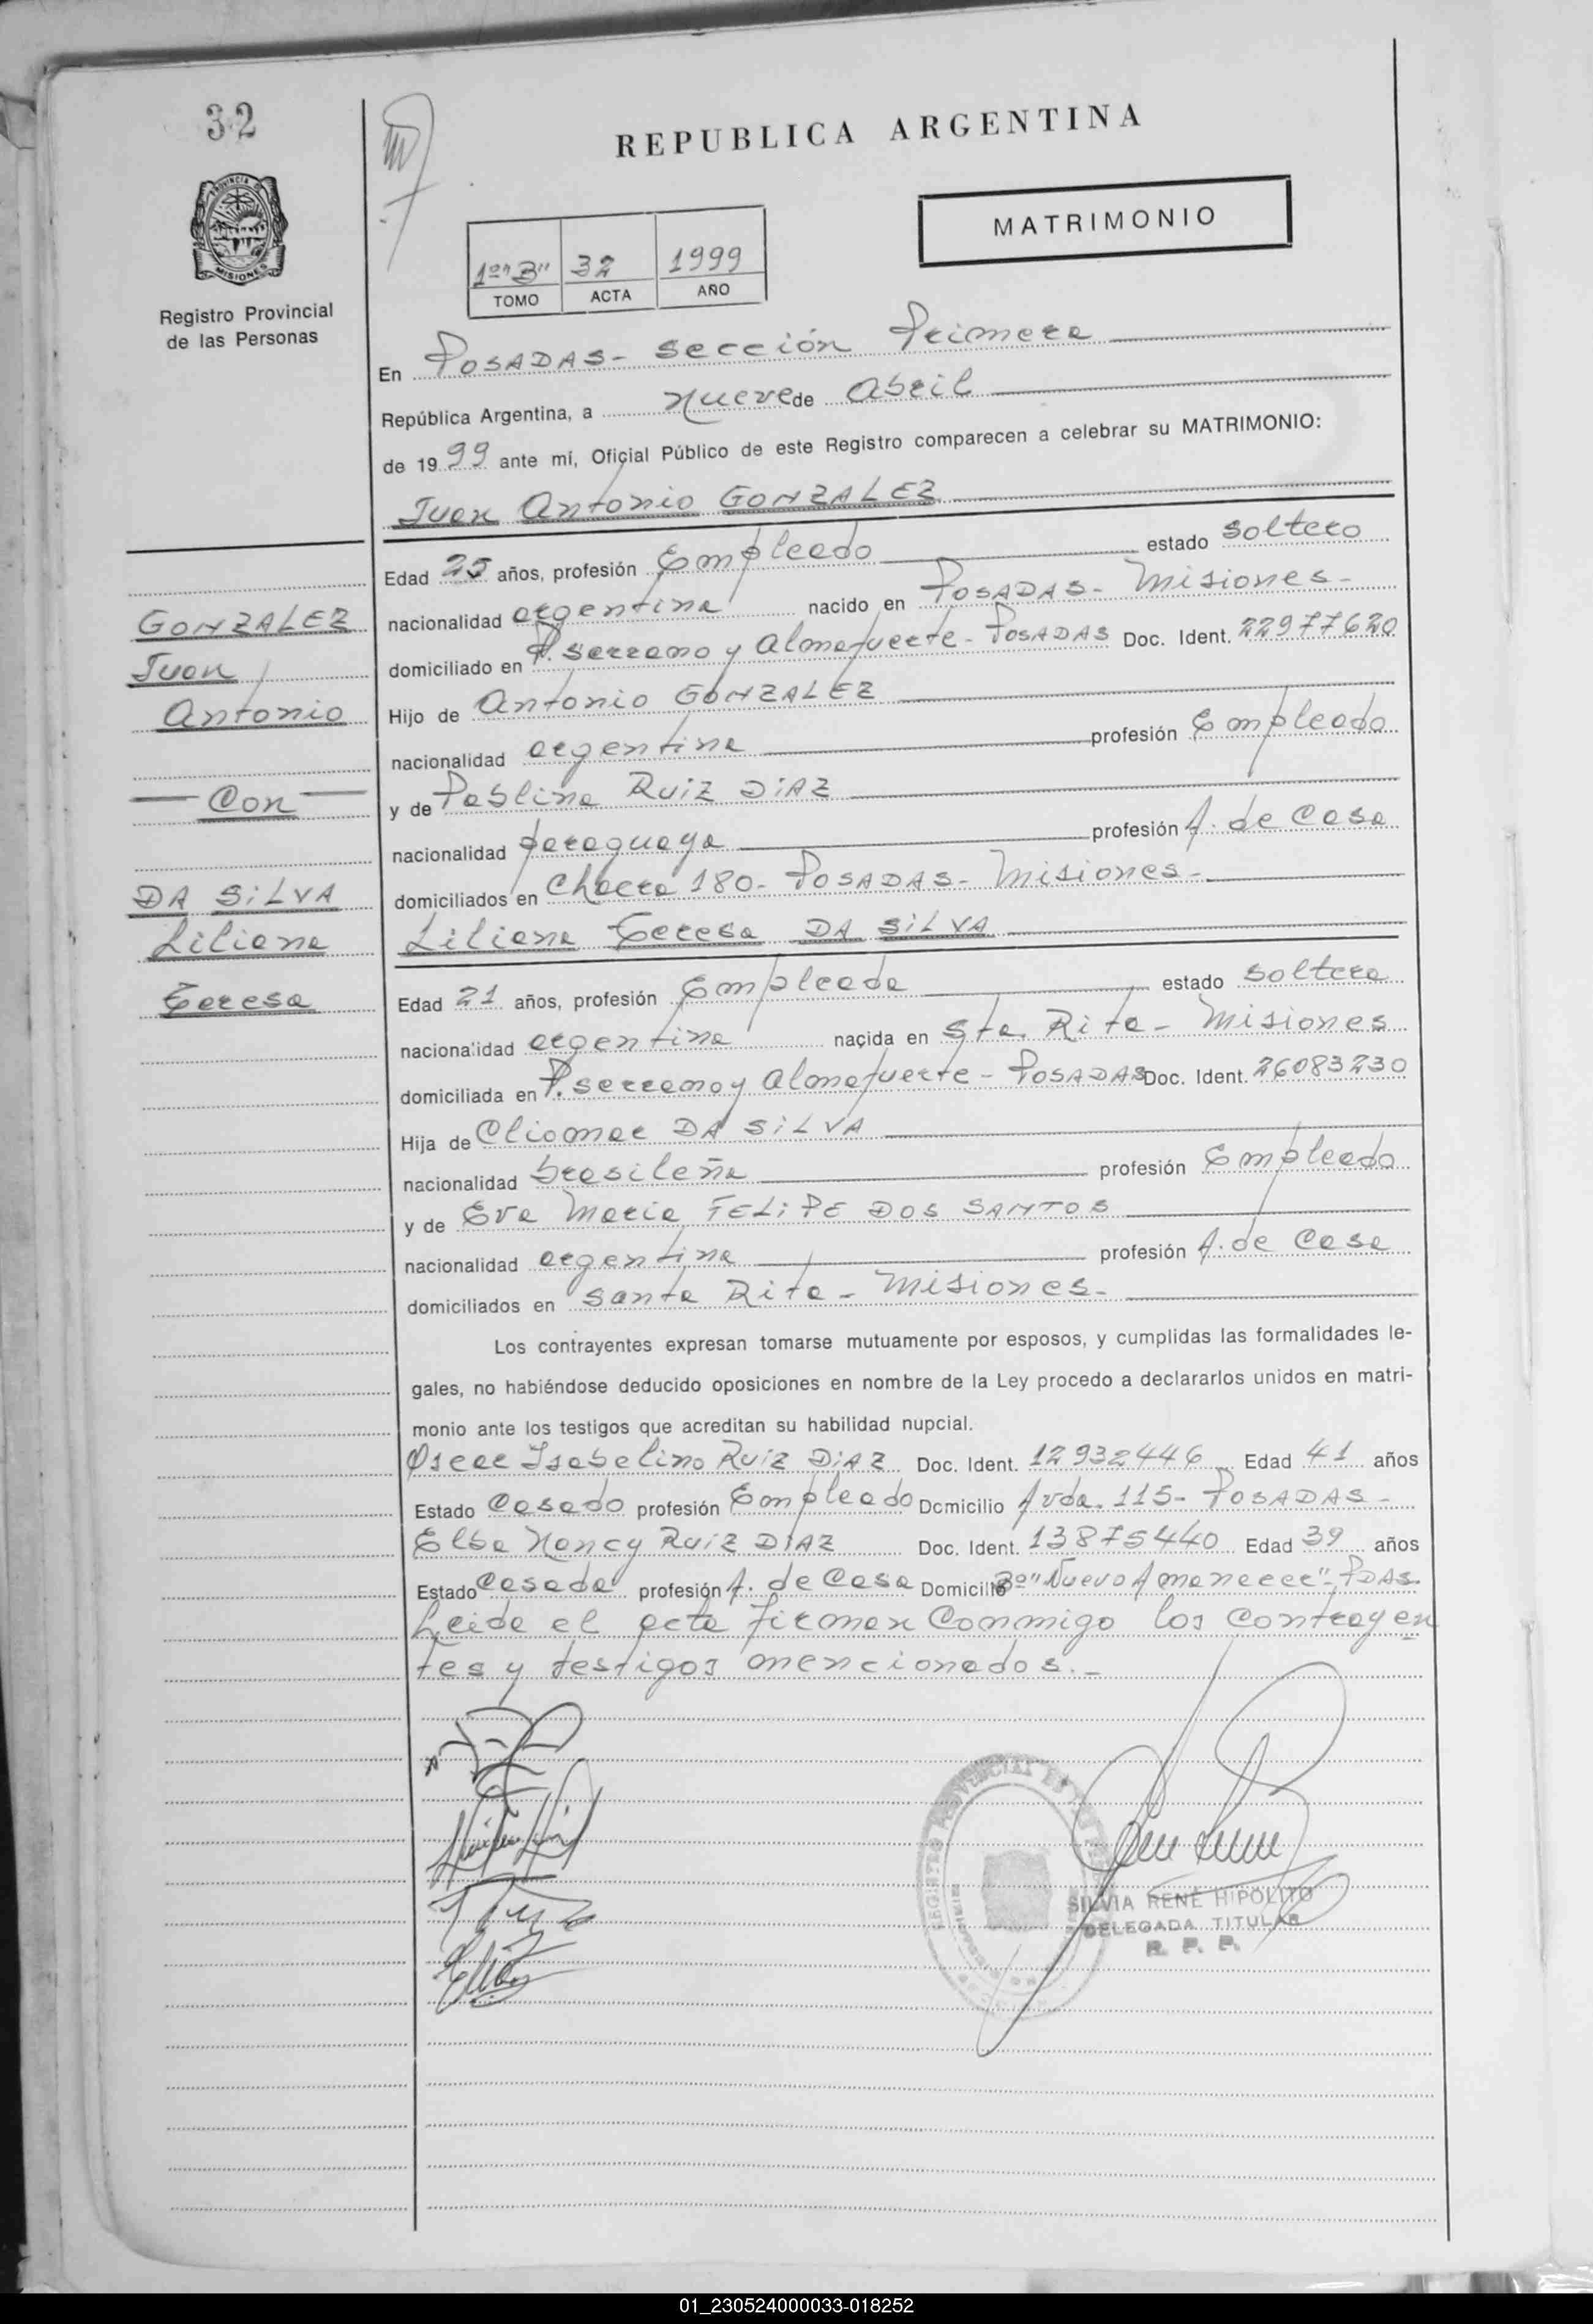 32
REPUBLICA ARGENTINA
MATRIMONIO
PROVINCIA D
MISIONES
Registro Provincial
de las Personas
1º "B" 32 1999
TOMO ACTA AÑO
En POSADAS- sección Primera
República Argentina, a nueve de Abril
de 1999 ante mí, Oficial Público de este Registro comparecen a celebrar su MATRIMONIO:
Juan Antonio GONZALEZ
Edad 25 años, profesión Empleado estado soltero
nacionalidad argentina nacido en POSADAS- Misiones-
domiciliado en P. Serrano y Almafuerte- POSADAS Doc. Ident. 22977620
Hijo de Antonio GONZALEZ
nacionalidad argentina profesión Empleado
y de Pablina RUIZ DIAZ
nacionalidad paraguaya profesión A. de Casa
domiciliados en Chacra 180- POSADAS- Misiones-
GONZALEZ
Juan
Antonio
Con
DA SILVA
Liliana
Teresa
Liliana Teresa DA SILVA
Edad 21 años, profesión Empleada estado soltera
nacionalidad argentina nacida en Sta. Rita- Misiones
domiciliada en P. Serrano y Almafuerte- POSADAS Doc. Ident. 26083230
Hija de Cliomar DA SILVA
nacionalidad brasileña profesión Empleado
y de Eva Maria FELIPE DOS SANTOS
nacionalidad argentina profesión A. de Casa
domiciliados en Santa Rita- Misiones-
Los contrayentes expresan tomarse mutuamente por esposos, y cumplidas las formalidades le-
gales, no habiéndose deducido oposiciones en nombre de la Ley procedo a declararlos unidos en matri-
monio ante los testigos que acreditan su habilidad nupcial.
Oscar Isabelino RUIZ DIAZ Doc. Ident. 12932446 Edad 41 años
Estado Casado profesión Empleado Domicilio Avda. 115- POSADAS-
Elba Nancy RUIZ DIAZ Doc. Ident. 13875440 Edad 39 años
Estado Casada profesión A. de Casa Domicilio Bº "Nuevo Amanecer"- PDAS.
Leida el acta firman Conmigo los Contrayen
tes y testigos mencionados.-
SILVIA RENÉ HIPÓLITO
DELEGADA TITULAR
R. P. P.
01_230524000033-018252